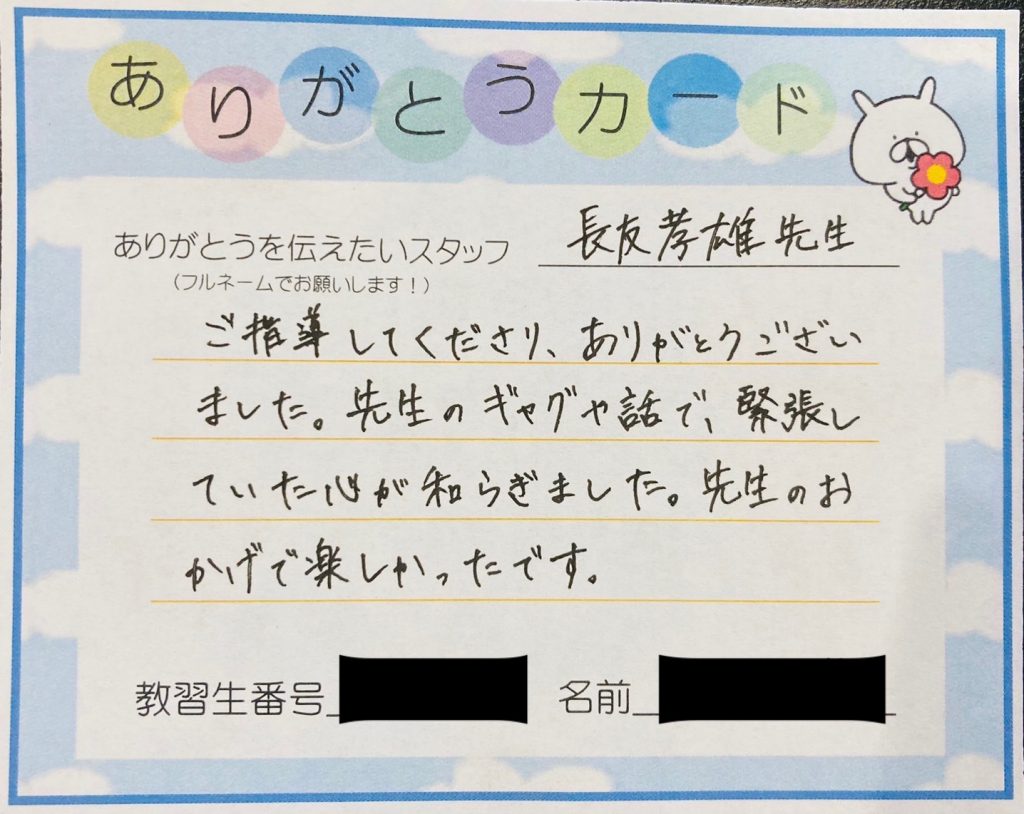 ありがとうカード
ありがとうを伝えたいスタッフ 長友孝雄先生
(フルネームでお願いします!)
ご指導してくださり、ありがとうござい
ました。先生のギャグや話で、緊張し
ていた心が和らぎました。先生のお
かげで楽しかったです。
教習生番号 名前